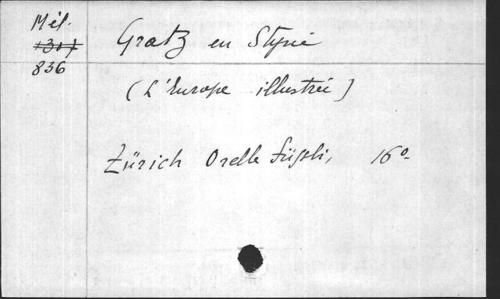 Mél.
836
Gratz en Styrie
(L'Europe illustrée)
Zürich Orelle Füssli, 16º